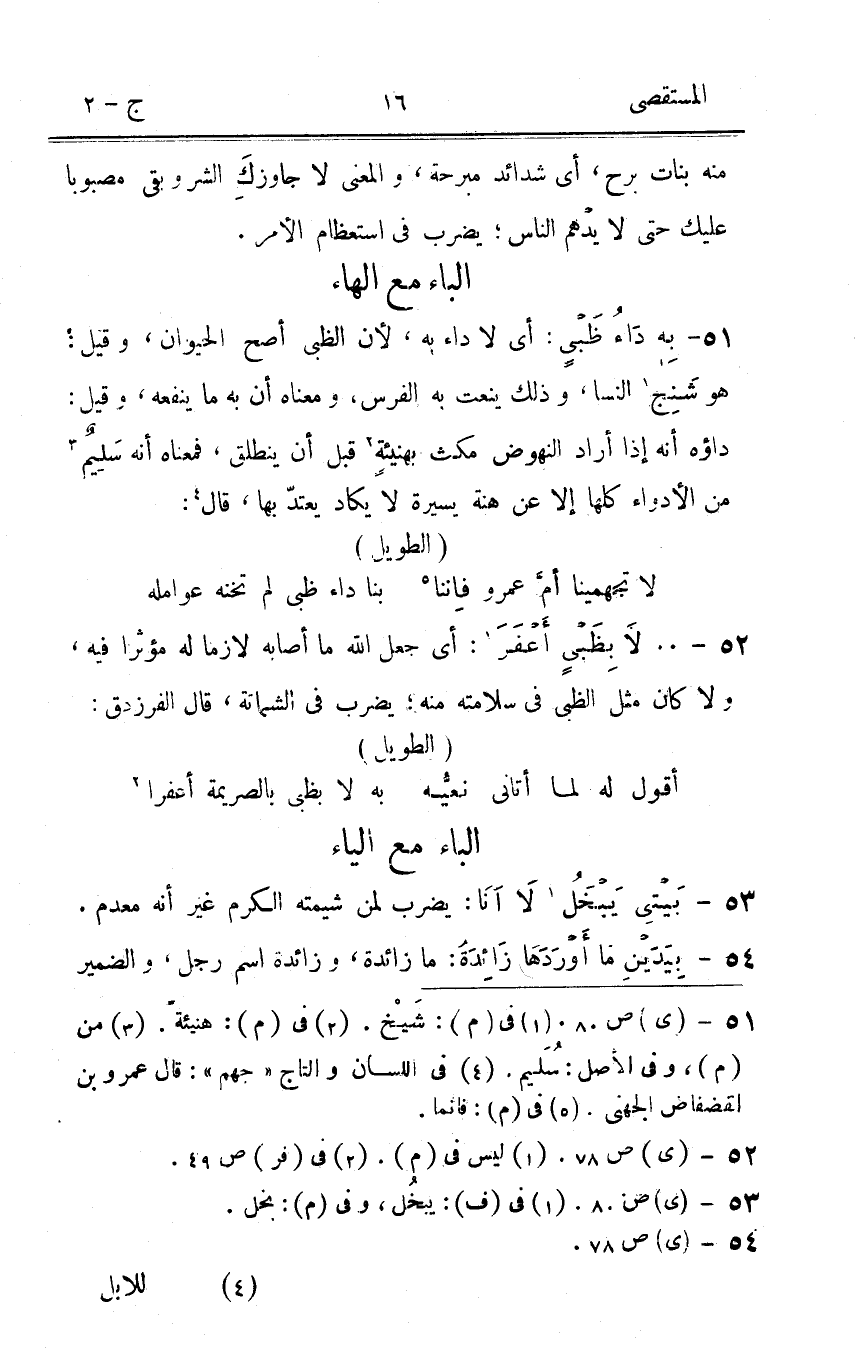 المستقصى ١٦ ج - ٢
منه بنات برح، أى شدائد مبرحة، و المعنى لا جاوزكَِ الشر و بقى مصبوبا
عليك حتى لا يدْهم الناس؛ يضرب فى استعظام الأمر .
الباء مع الهاء
٥١- بِهِ دَاءُ ظَبْيٍ : أى لا داء به، لأن الظبى أصح الحيوان، و قيل:
هو شَنِج١ النسا، و ذلك ينعت به الفرس، و معناه أن به ما ينفعه، و قيل:
داؤه أنه إذا أراد النهوض مكث بهنيئةٍ٢ قبل أن ينطلق، فمعناه أنه سَليمٌ٣
من الأدواء كلها إلا عن هنة يسيرة لا يكاد يعتدّ بها، قال٤:
( الطويل )
لا تجهمينا أمَّ عمرو فإننا٥ بنا داء ظبى لم تخنه عوامله
٥٢ - ٠٠ لَا بِظَبْيٍ أَعْفَرَ١ : أى جعل الله ما أصابه لازما له مؤثرا فيه،
و لا كان مثل الظبى فى سلامته منه؛ يضرب فى الشماتة، قال الفرزدق :
( الطويل )
أقول له لما أتانى نعيُّه به لا بظبى بالصريمة أعفرا٢
الباء مع الياء
٥٣ - بَيْتِي يَبْخَلُ١ لَا آنَا: يضرب لمن شيمته الكرم غير أنه معدم .
٥٤ - بِيَدَيْنِ مَا أَوْرَدَهَا زَائِدَةُ: ما زائدة، و زائدة اسم رجل، و الضمير
٥١ - (ى) ص ٨٠. (١) فى (م): شَيْخ . (٢) فى (م): هنيئة . (٣) من
(م)، و فى الأصل: سُلَيم . (٤) فى اللسان و التاج « جهم »: قال عمرو بن
لقضفاض الجهنى . (٥) فى (م): فانما .
٥٢ - (ى) ص ٧٨ . (١) ليس فى (م) . (٢) فى (فر) ص ٤٩ .
٥٣ - (ى) ص ٨٠ . (١) فى (ف): يبخُل، و فى (م): بخل .
٥٤ - (ى) ص ٧٨ .
(٤) للابل